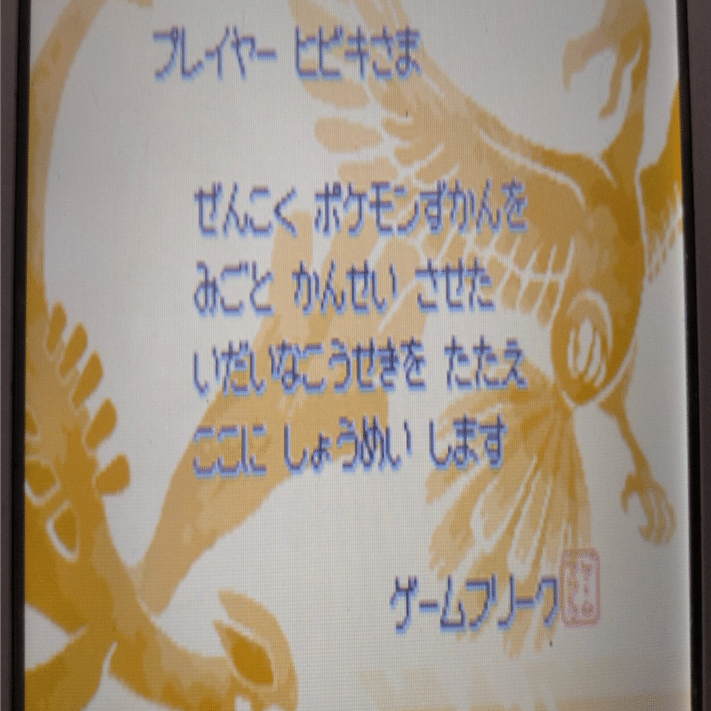 プレイヤー ヒビキさま
ぜんこく ポケモンずかんを
みごと かんせい させた
いだいなこうせきを たたえ
ここに しょうめい します
ゲームフリーク